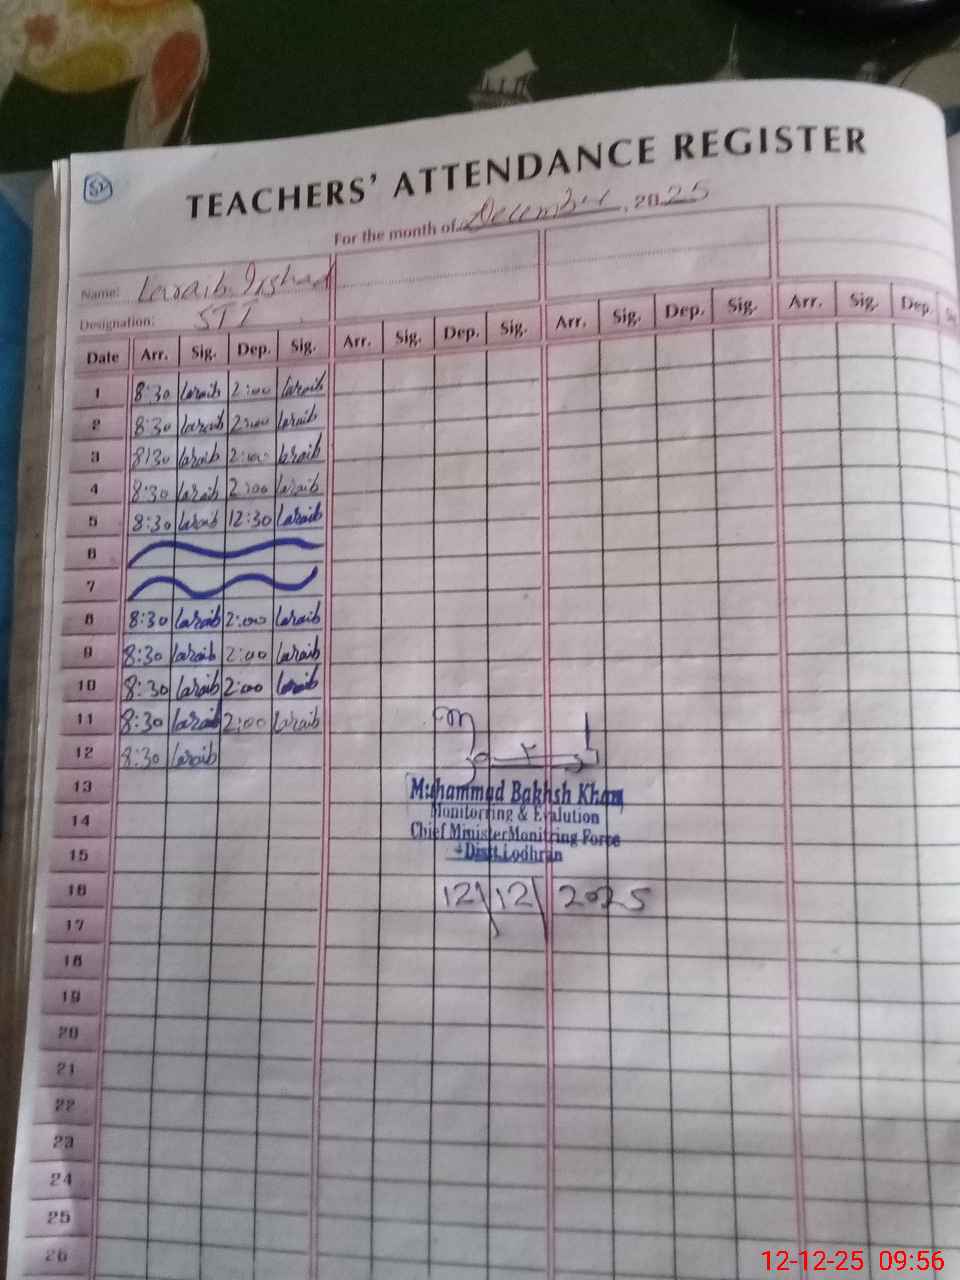 TEACHERS' ATTENDANCE REGISTER
For the month of December, 2025
Name: Laraib Irshad
Designation: STI
Date Arr. Sig. Dep. Sig. Arr. Sig. Dep. Sig. Arr. Sig. Dep. Sig. Arr. Sig. Dep.
1 8:30 Laraib 2:00 Laraib
2 8:30 Laraib 2:00 Laraib
3 8:30 Laraib 2:00 Laraib
4 8:30 Laraib 2:00 Laraib
5 8:30 Laraib 12:30 Laraib
6
7
8 8:30 Laraib 2:00 Laraib
9 8:30 Laraib 2:00 Laraib
10 8:30 Laraib 2:00 Laraib
11 8:30 Laraib 2:00 Laraib
12 8:30 Laraib
13
14
15
16
17
18
19
20
21
22
23
24
25
26
Muhammad Bakhsh Khan
Monitorring & Evalution
Chief Minister Monitring Force
Distt. Lodhran
12/12/2025
12-12-25 09:56